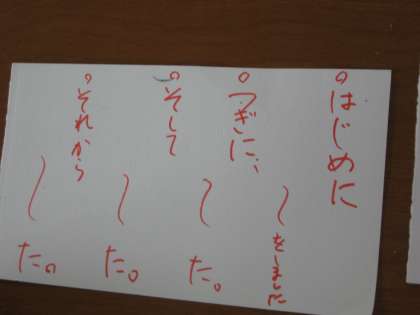 ○はじめに
〜をしました
○つぎに、
〜た。
○そして
〜た。
○それから
〜た。